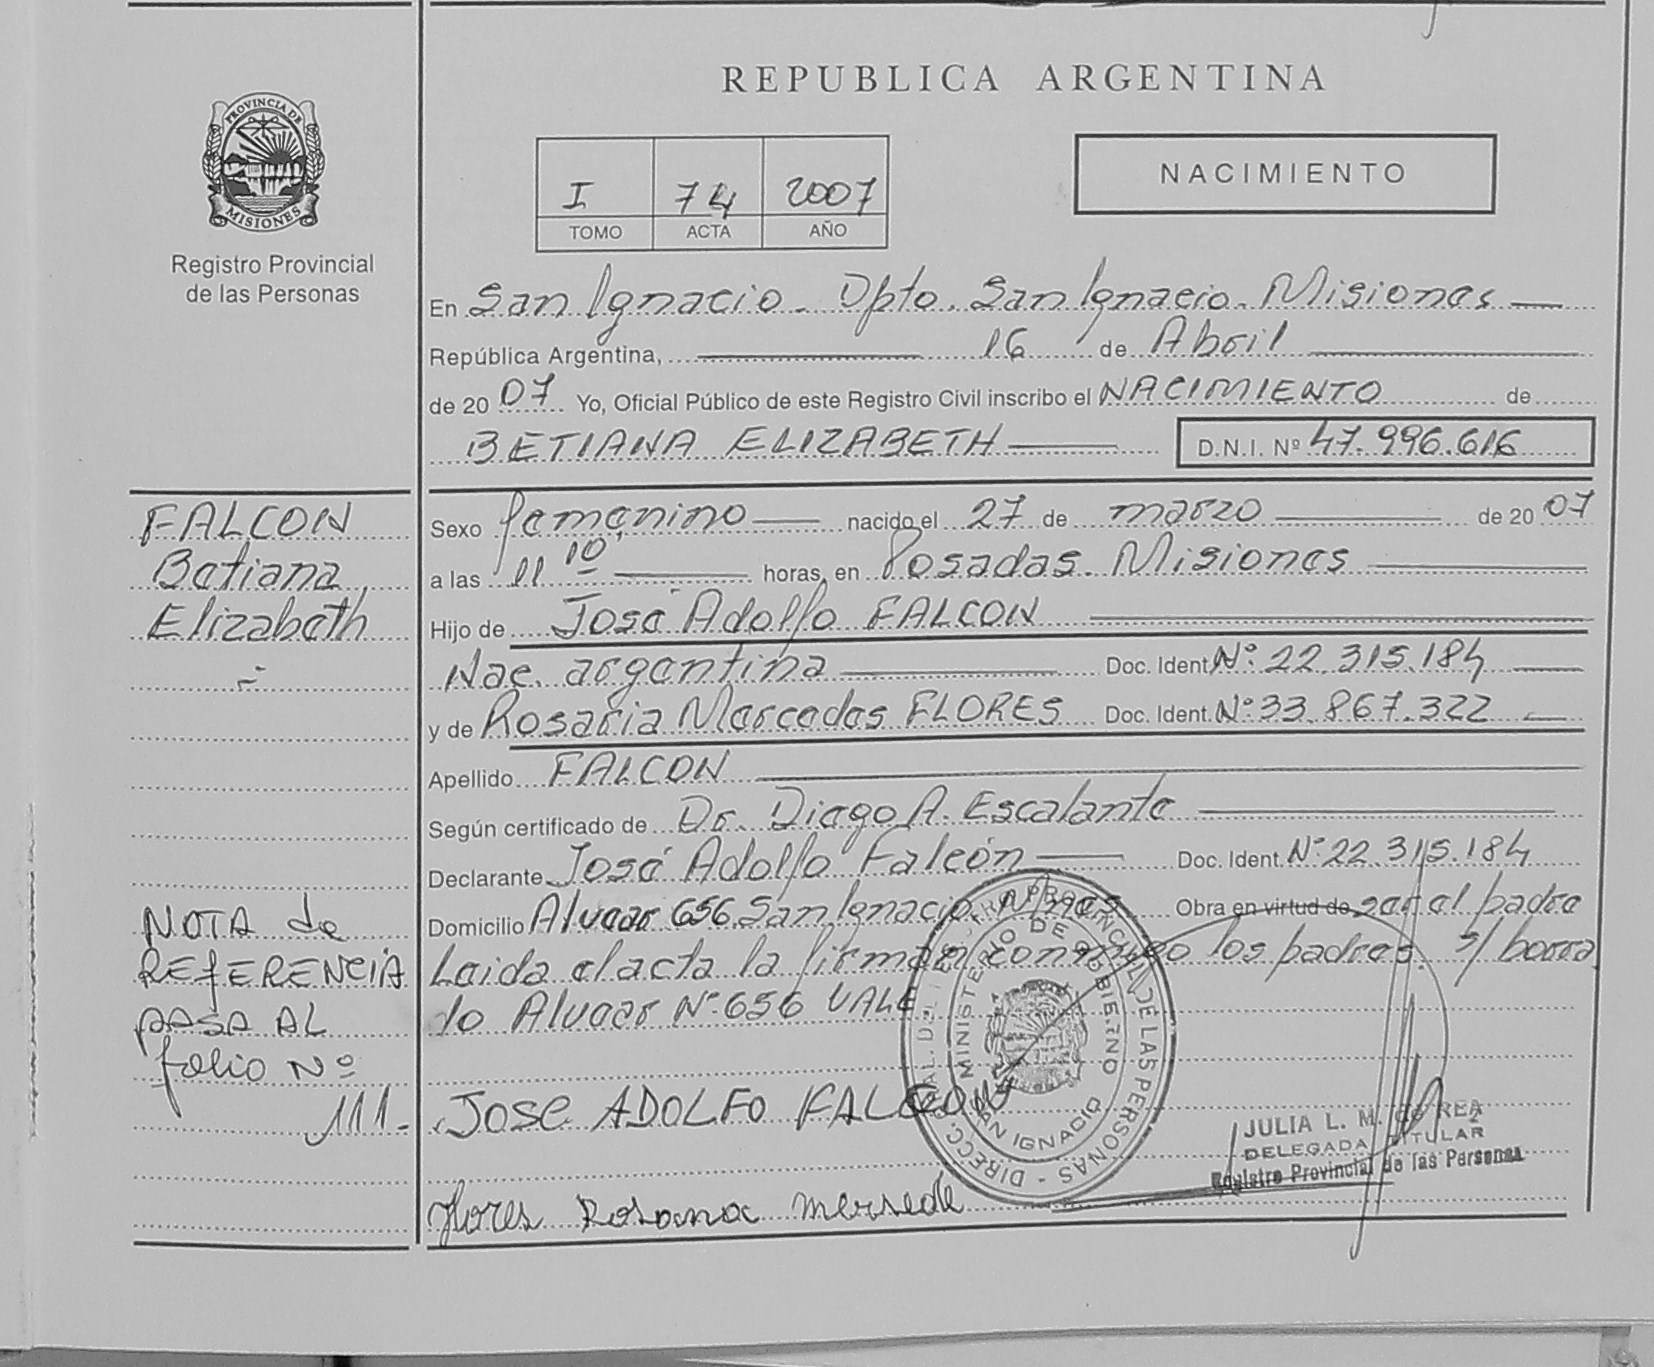 REPUBLICA ARGENTINA
PROVINCIA DE
MISIONES
Registro Provincial
de las Personas
I 74 2007
TOMO ACTA AÑO
NACIMIENTO
En San Ignacio. Dpto. San Ignacio. Misiones
República Argentina, 16 de Abril
de 2007 Yo, Oficial Público de este Registro Civil inscribo el NACIMIENTO de
BETIANA ELIZABETH D.N.I. Nº 47.996.616
FALCON
Betiana
Elizabeth
Sexo femenino nacido el 27 de marzo de 2007
a las 11 10 horas, en Posadas. Misiones
Hijo de José Adolfo FALCON
Nac. argentina Doc. Ident. Nº 22.315.184
y de Rosaria Mercedes FLORES Doc. Ident. Nº 33.867.322
Apellido FALCON
Según certificado de Dr. Diego A. Escalante
Declarante José Adolfo Falcón Doc. Ident. Nº 22.315.184
Domicilio Alvear 656 San Ignacio. Mnes Obra en virtud de ser el padre
Leida el acta la firman conmigo los padres. s/ borra
do Alvear Nº 656 VALE
NOTA de
REFERENCIA
PASA AL
folio Nº
111.-
JOSE ADOLFO FALCON
Flores Rosana mersede
DIRECC. GRAL. DEL REGISTRO PROVINCIAL DE LAS PERSONAS
MINISTERIO DE GOBIERNO
SAN IGNACIO
JULIA L. M. CORREA
DELEGADA TITULAR
Registro Provincial de las Personas